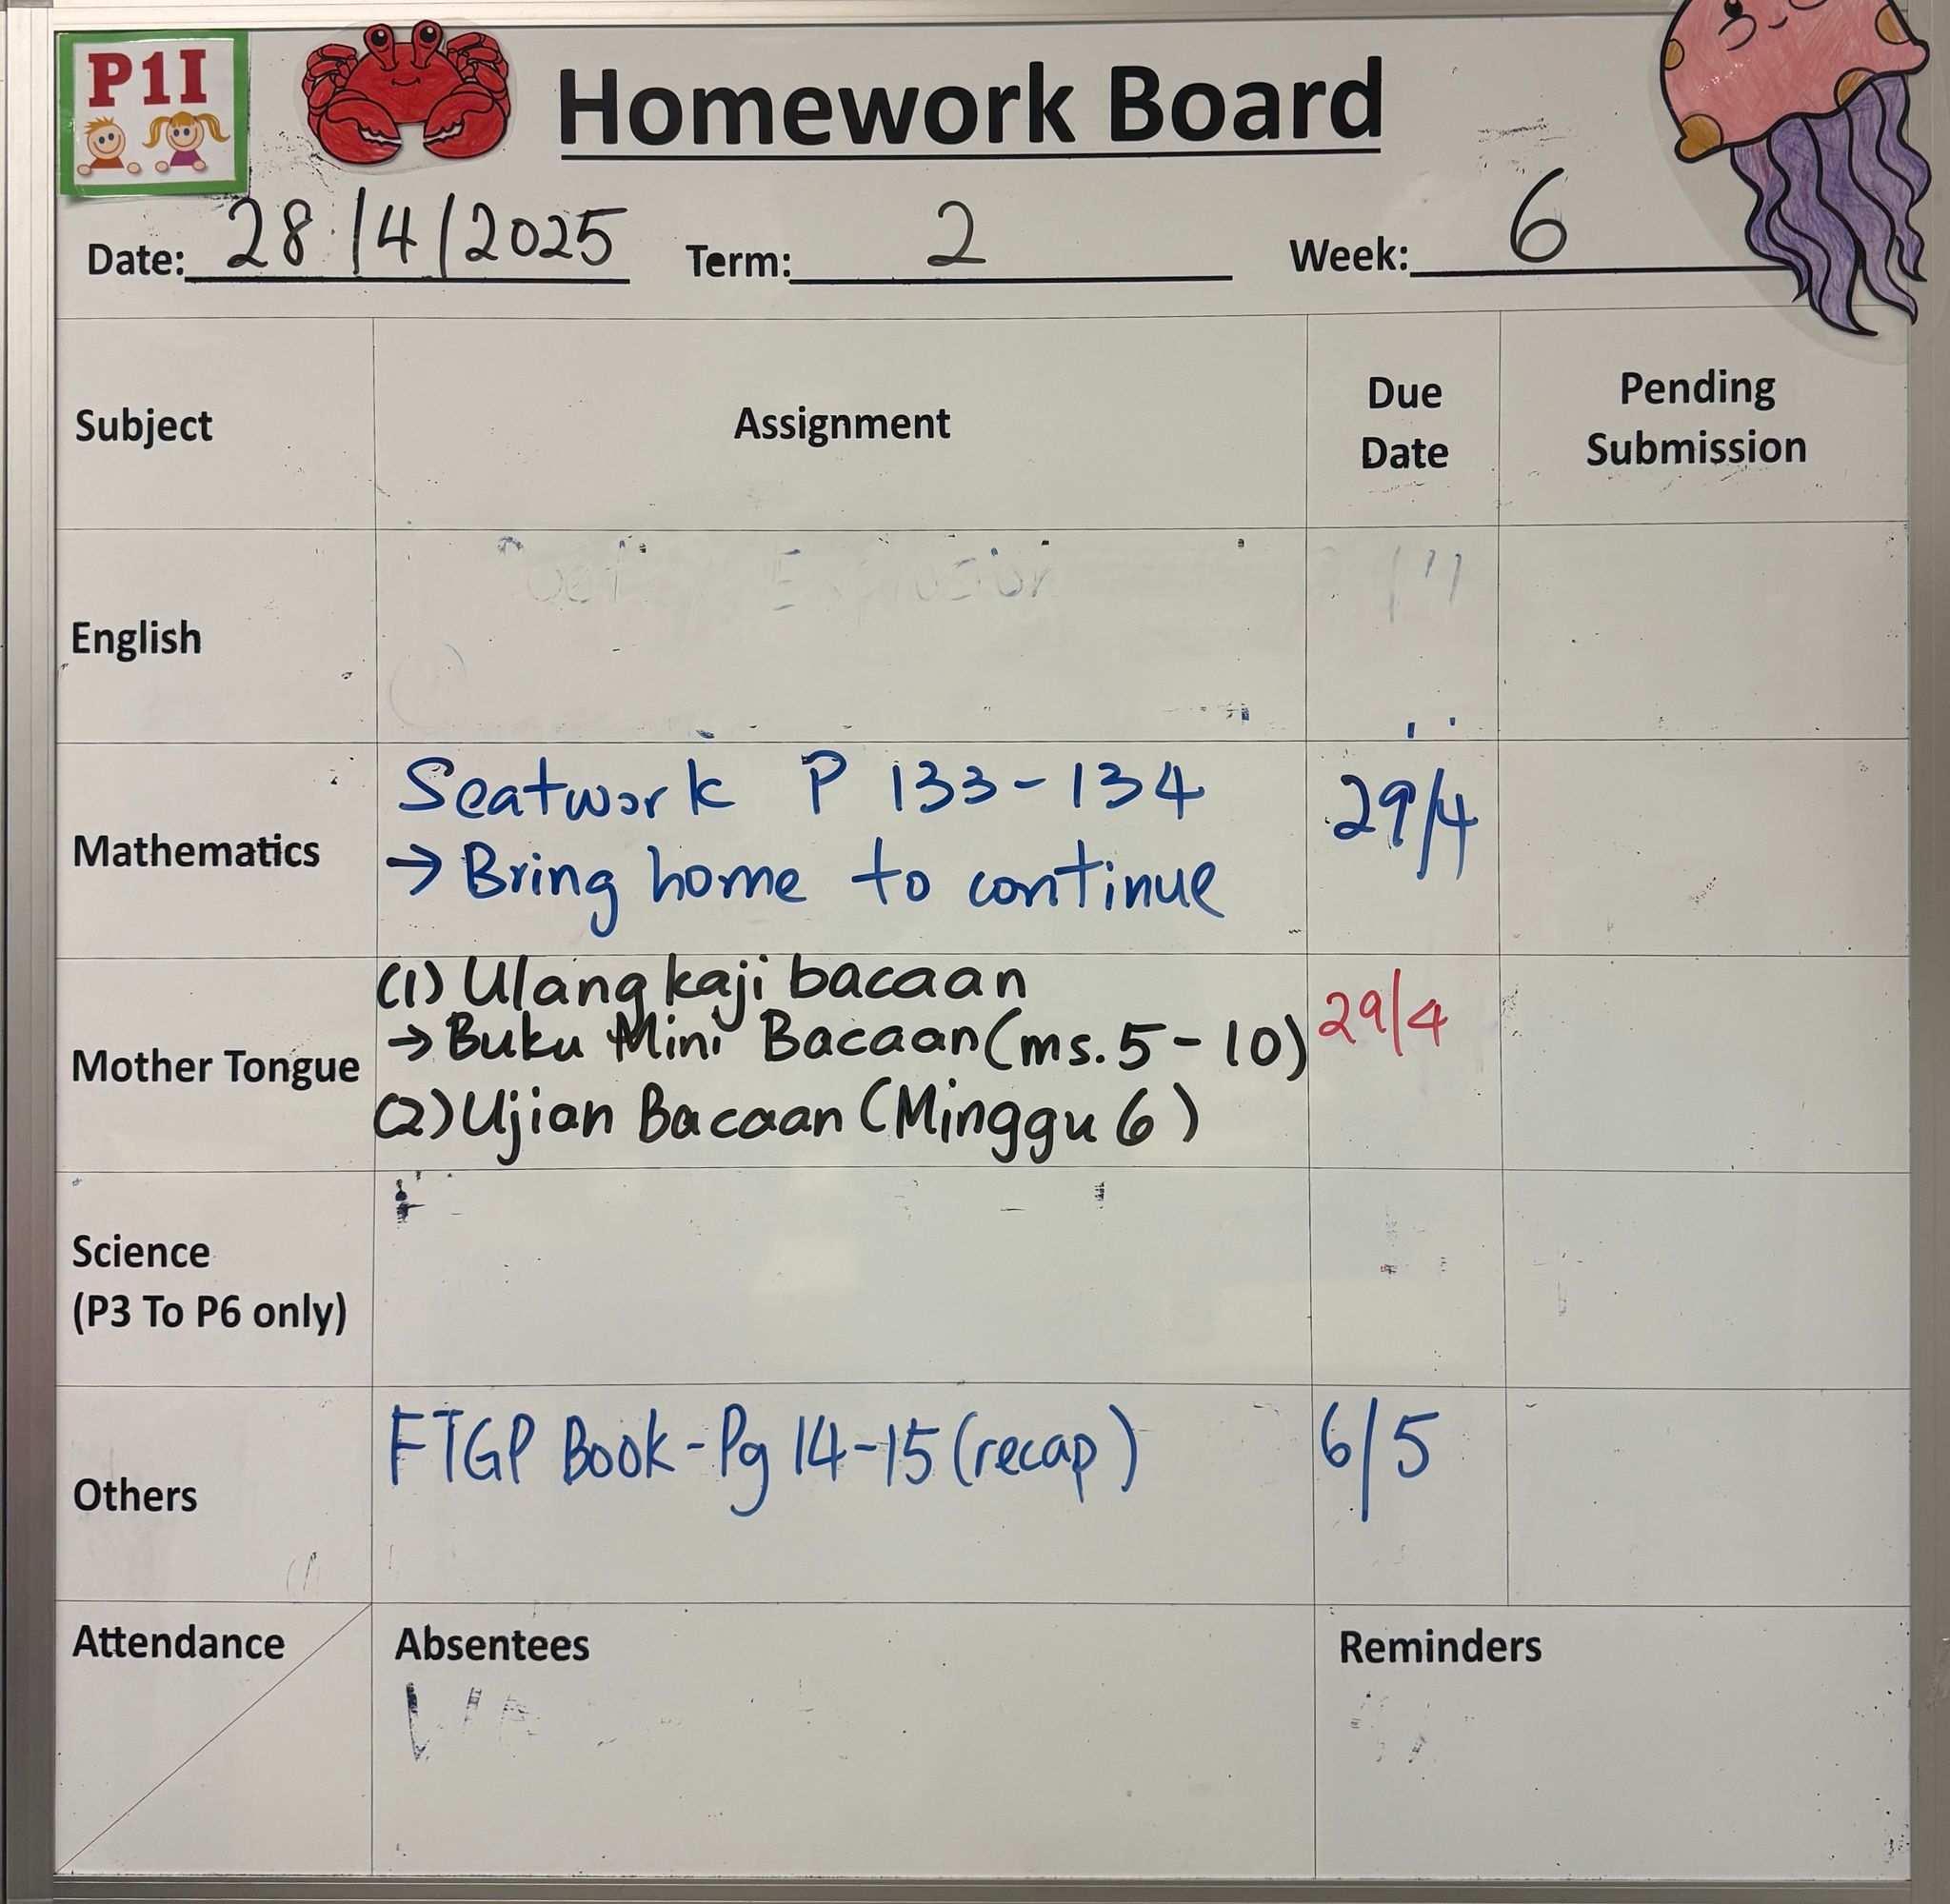 P1I
Homework Board
Date: 28/4/2025 Term: 2 Week: 6
Subject Assignment Due Date Pending Submission
English
Mathematics
Seatwork P 133-134 29/4
→ Bring home to continue
Mother Tongue
(1) Ulang kaji bacaan
→ Buku Mini Bacaan (ms. 5-10) 29/4
(2) Ujian Bacaan (Minggu 6)
Science
(P3 To P6 only)
Others
FTGP Book - Pg 14-15 (recap) 6/5
Attendance Absentees Reminders